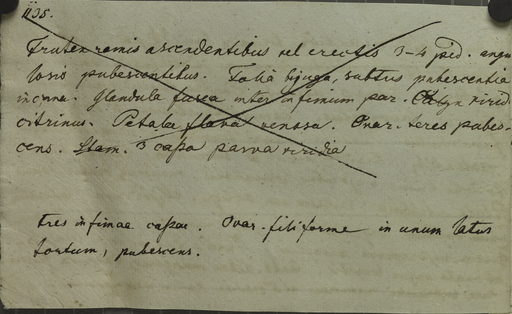 1135.
Frutex ramis ascendentibus vel erectis 3-4 ped. angu
losis pubescentibus. Folia bijuga, subtus pubescentia
incana. Glandula fusca inter infimum par. Calyx virid.
citrinus. Petala flava venosa. Ovar. teres pubes-
cens. Stam. 3 capa parva viridia
tres infimae capae. Ovar. filiforme in unum latus
tortum, pubescens.